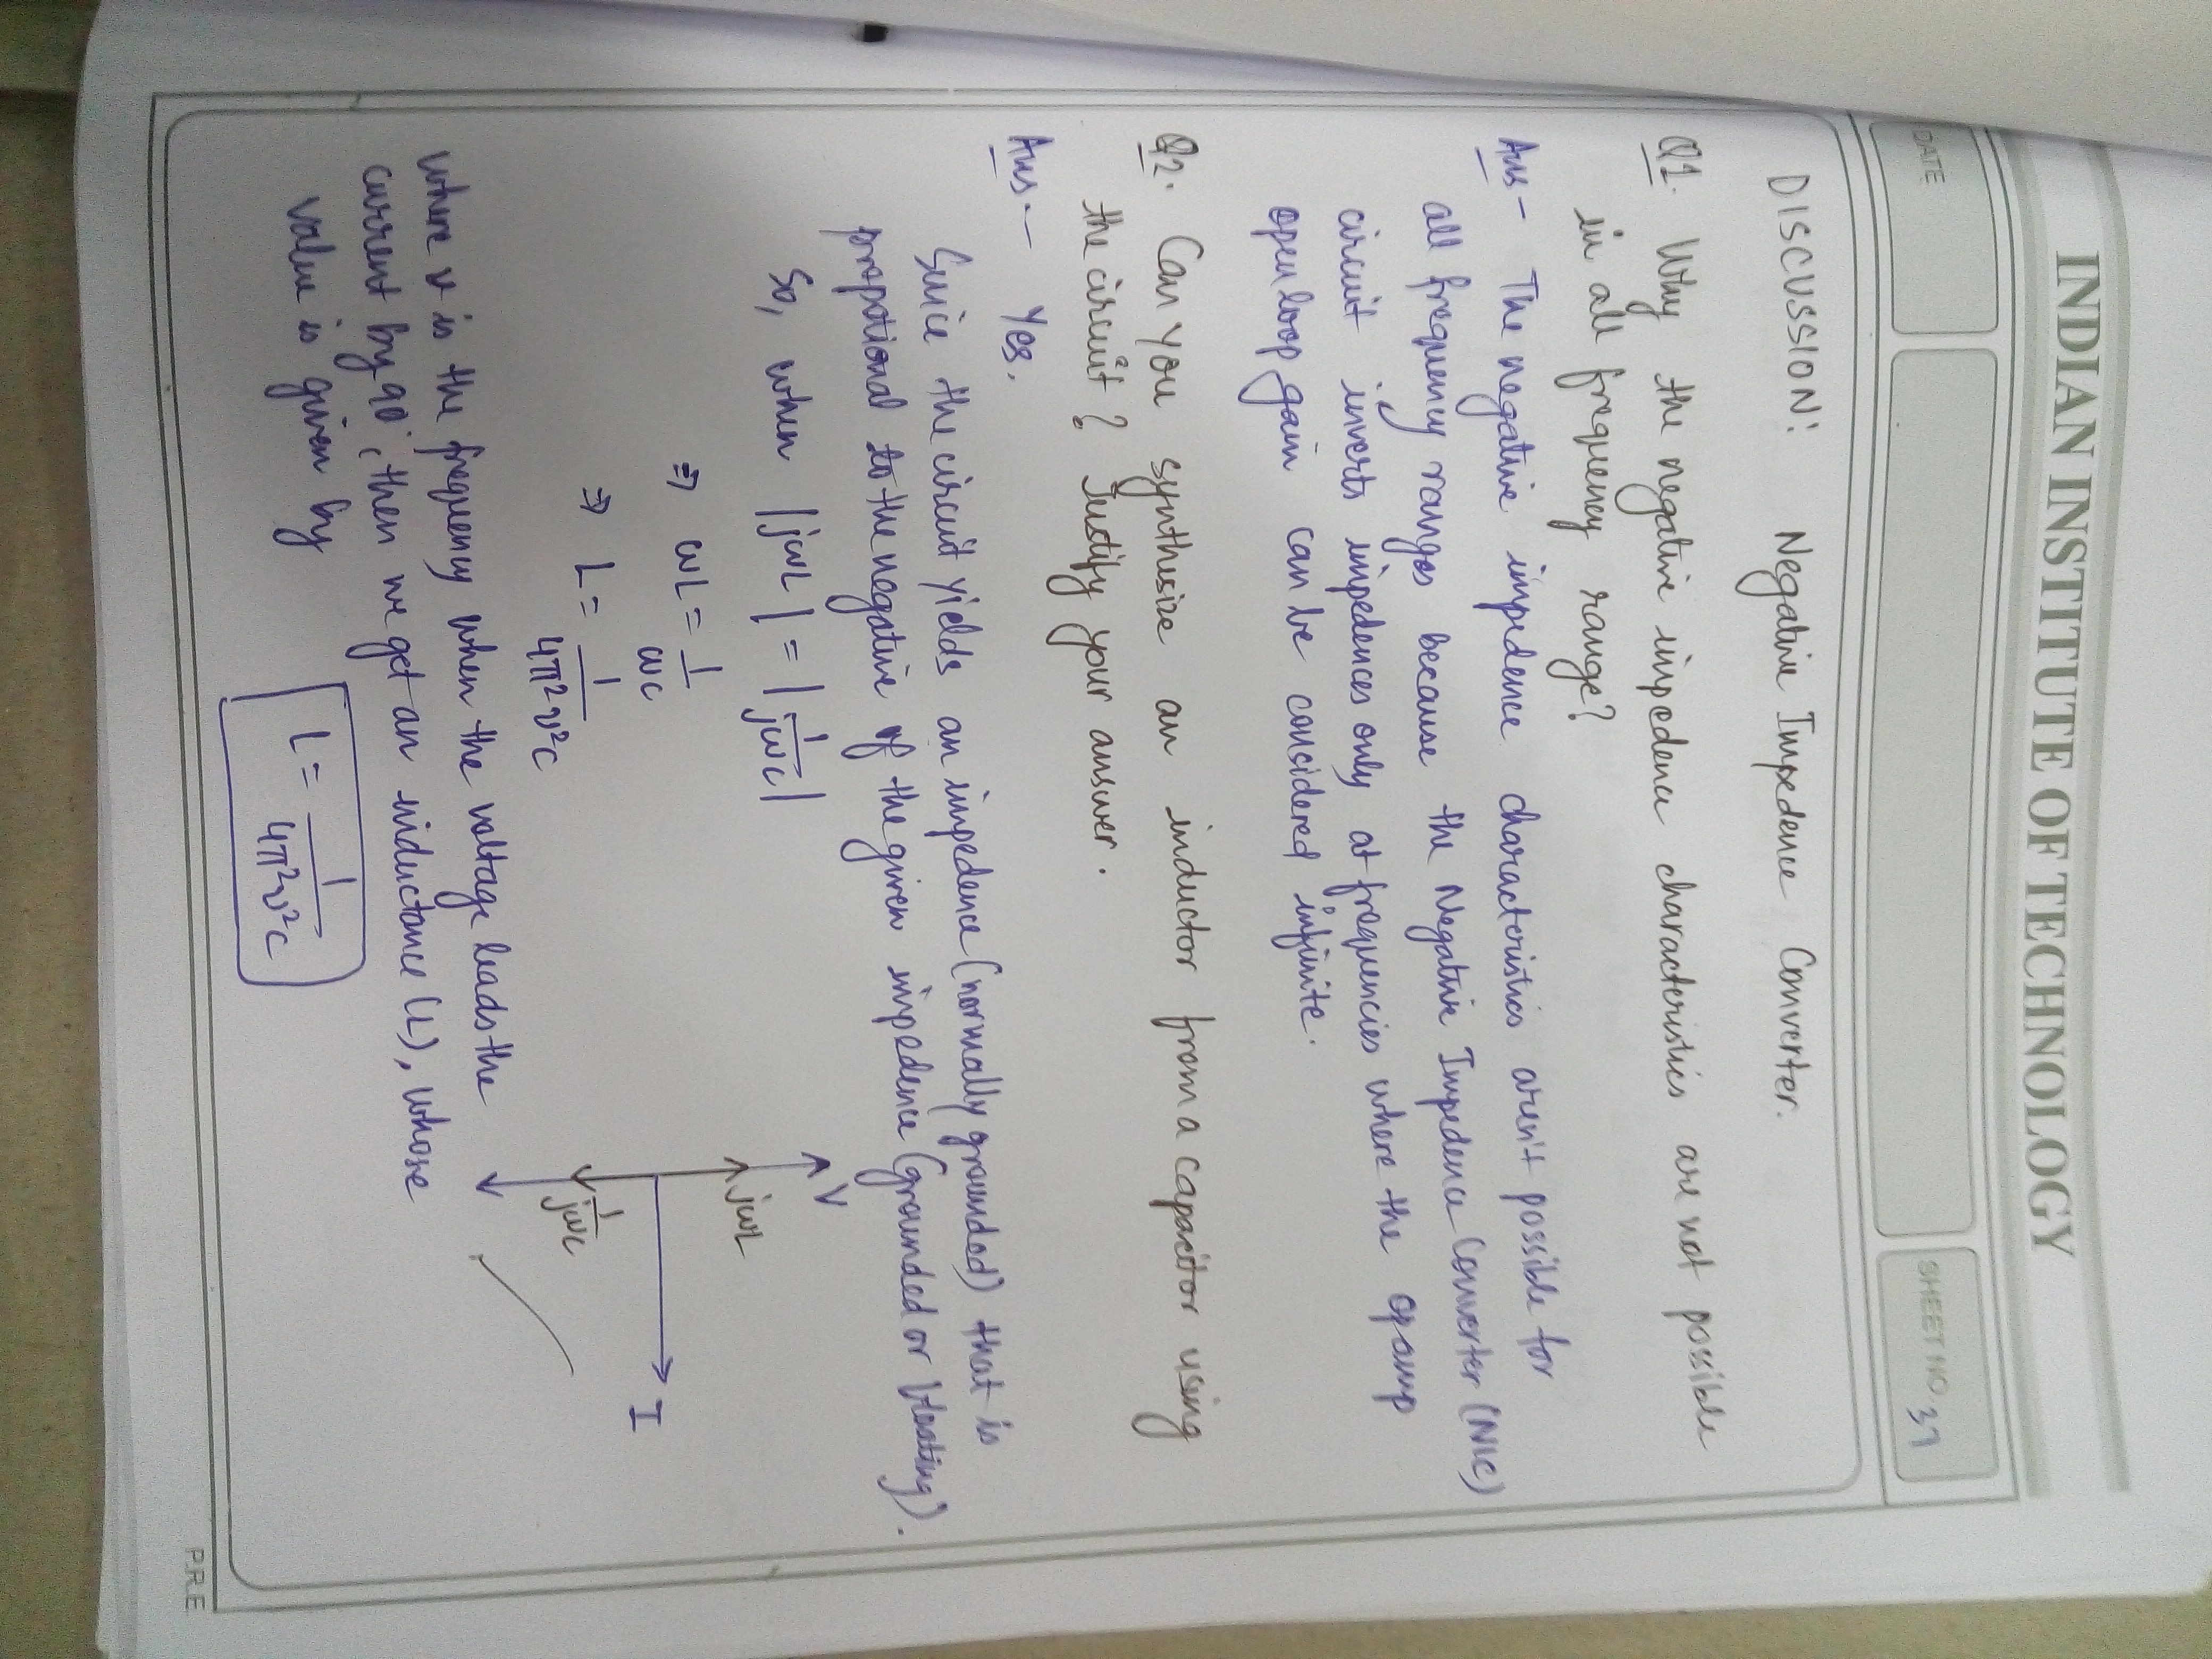 INDIAN INSTITUTE OF TECHNOLOGY
DATE
SHEET NO. 37
DISCUSSION: Negative Impedence Converter.
Q1. Why the negative impedence characteristics are not possible
in all frequency range?
Ans - The negative impedence characteristics aren't possible for
all frequency ranges because the Negative Impedence Converter (NIC)
circuit inverts impedences only at frequencies where the opamp
open loop gain can be considered infinite.
Q2. Can you synthesize an inductor from a capacitor using
the circuit? Justify your answer.
Ans.- Yes.
Since the circuit yields an impedence (normally grounded) that is
propotional to the negative of the given impedence (grounded or floating).
So, when |jωL| = |1/jωC|
⇒ ωL = 1/ωC
⇒ L = 1/4π²ν²C
V
jωL
I
1/jωC
where ν is the frequency when the voltage leads the
current by 90°, then we get an inductance (L), whose
value is given by L = 1/4π²ν²C
P.R.E